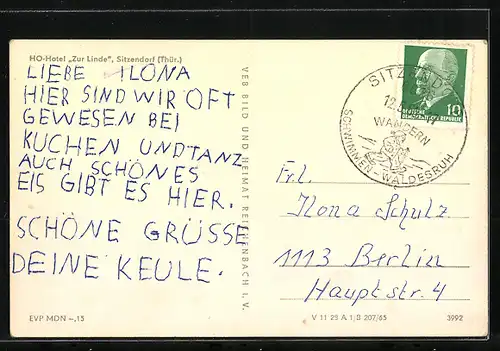 HO-Hotel „Zur Linde", Sitzendorf (Thür.)
LIEBE ILONA
HIER SIND WIR OFT
GEWESEN BEI
KUCHEN UNDTANZ
AUCH SCHÖNES
EIS GIBT ES HIER.
SCHÖNE GRÜSSE
DEINE KEULE.
EVP MDN –,15
VEB BILD UND HEIMAT REICHENBACH I. V.
DEUTSCHE
DEMOKRATISCHE REPUBLIK
10
WANDERN
SCHWIMMEN - WALDESRUH
Frl.
Ilona Schulz
1113 Berlin
Hauptstr. 4
V 11 28 A 1/B 207/65
3992